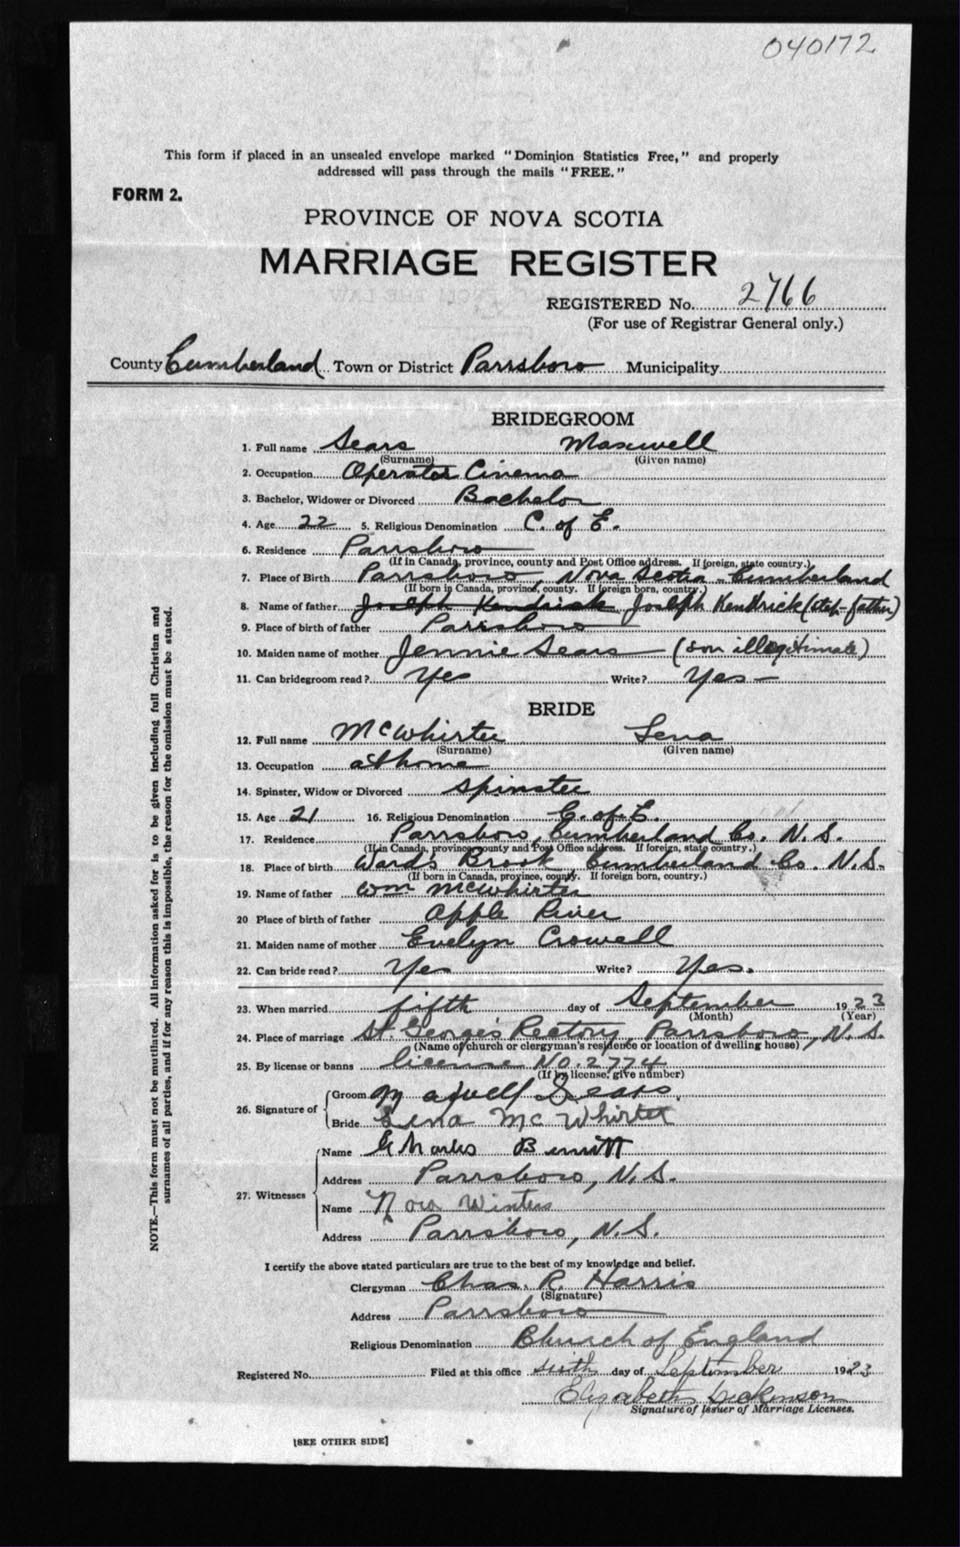 040172
This form if placed in an unsealed envelope marked "Dominion Statistics Free," and properly
addressed will pass through the mails "FREE."
FORM 2.
PROVINCE OF NOVA SCOTIA
MARRIAGE REGISTER
REGISTERED No. 2766
(For use of Registrar General only.)
County Cumberland Town or District Parrsboro Municipality
BRIDEGROOM
1. Full name Sears Maxwell
(Surname) (Given name)
2. Occupation Operator Cinema
3. Bachelor, Widower or Divorced Bachelor
4. Age 22 5. Religious Denomination C. of E.
6. Residence Parrsboro
(If in Canada, province, county and Post Office address. If foreign, state country.)
7. Place of Birth Parrsboro, Nova Scotia - Cumberland
(If born in Canada, province, county. If foreign born, country.)
8. Name of father Joseph Kendrick Joseph Kendrick (step-father)
9. Place of birth of father Parrsboro
10. Maiden name of mother Jennie Sears (son illegitimate)
11. Can bridegroom read? Yes Write? Yes
BRIDE
12. Full name McWhirter Lena
(Surname) (Given name)
13. Occupation at home
14. Spinster, Widow or Divorced Spinster
15. Age 21 16. Religious Denomination C. of E.
17. Residence Parrsboro, Cumberland Co. N.S.
(If in Canada, province, county and Post Office address. If foreign, state country.)
18. Place of birth Wards Brook Cumberland Co. N.S.
(If born in Canada, province, county. If foreign born, country.)
19. Name of father Wm McWhirter
20 Place of birth of father Apple River
21. Maiden name of mother Evelyn Crowell
22. Can bride read? Yes Write? Yes.
23. When married fifth day of September 1923
(Month) (Year)
24. Place of marriage St. George's Rectory, Parrsboro, N.S.
(Name of church or clergyman's residence or location of dwelling house)
25. By license or banns license No. 2774
(If by license, give number)
26. Signature of Groom Maxwell Sears.
Bride Lena McWhirter
27. Witnesses Name Charles
Address Parrsboro, N.S.
Name Nora Winters
Address Parrsboro, N.S.
I certify the above stated particulars are true to the best of my knowledge and belief.
Clergyman Chas. R. Harris
(Signature)
Address Parrsboro
Religious Denomination Church of England
Registered No. Filed at this office sixth day of September 1923
Elizabeth Dickinson
Signature of Issuer of Marriage Licenses.
[SEE OTHER SIDE]
NOTE.—This form must not be mutilated. All information asked for is to be given including full Christian and
surnames of all parties, and if for any reason this is impossible, the reason for the omission must be stated.